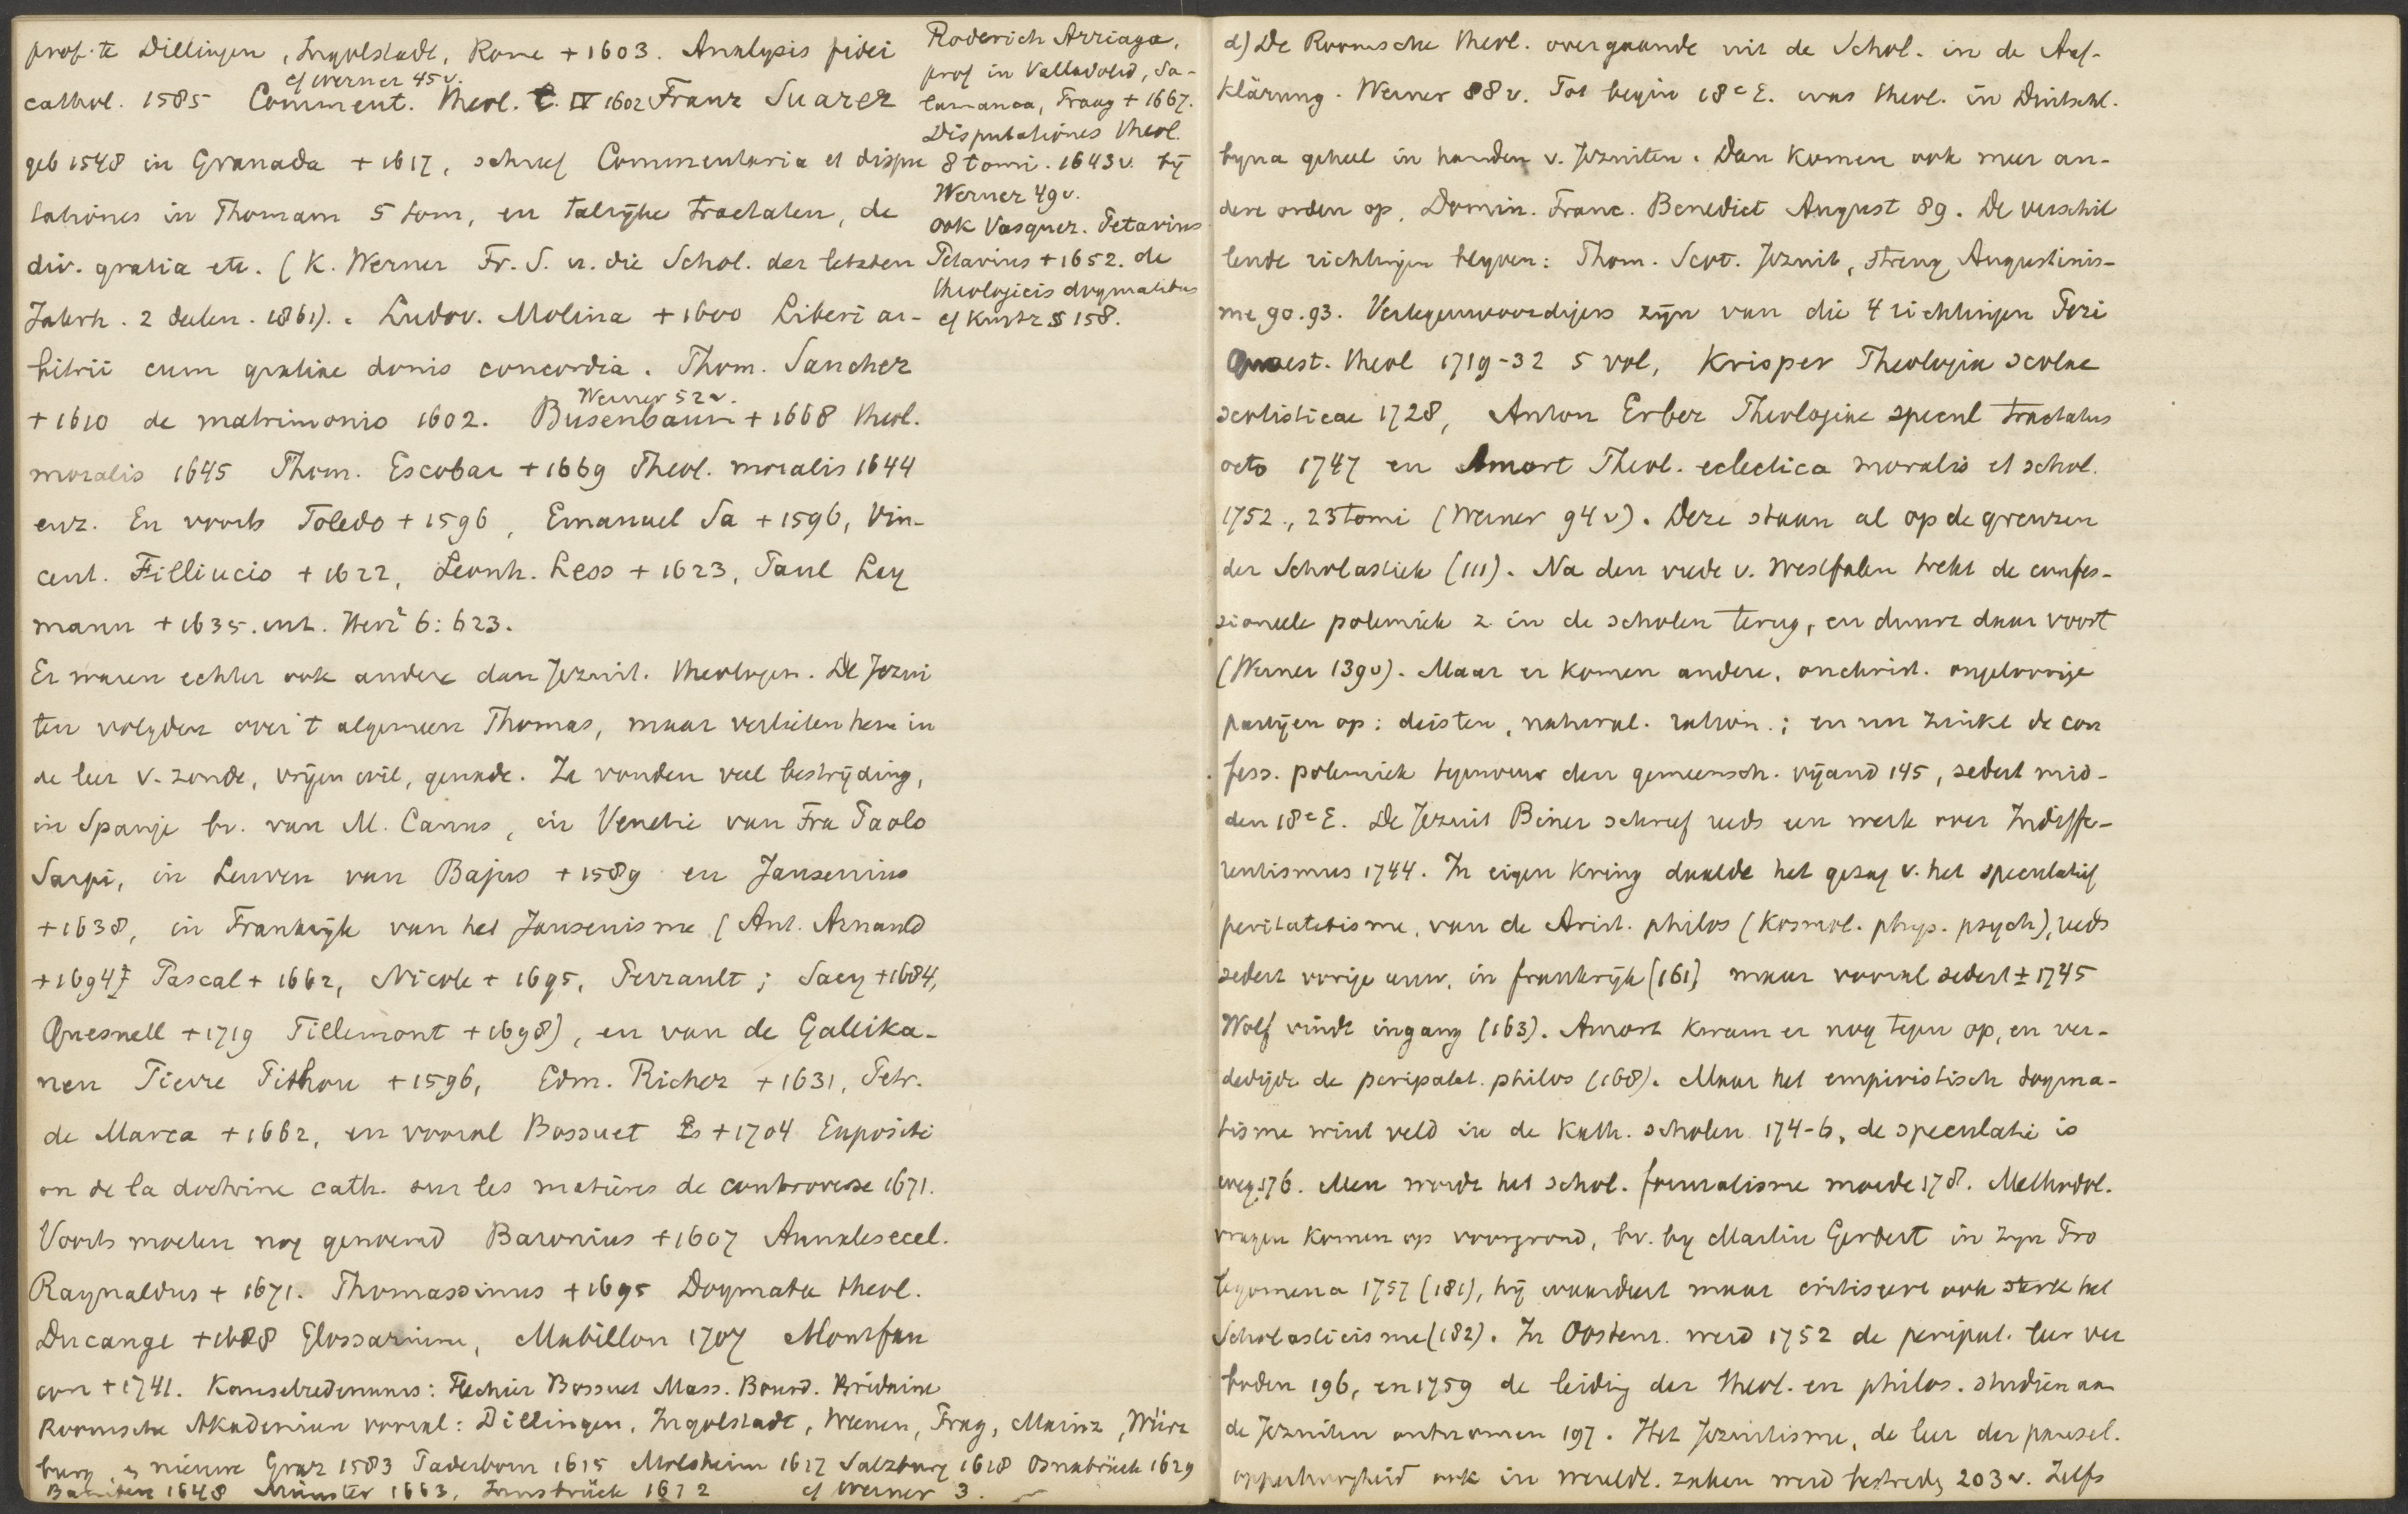 prof. te Dillingen, Ingolstadt, Rome + 1603. Analysis fidei
cf Werner 45 v.
cathol. 1585 Comment. theol. t. IV 1602 Franz Suarez
geb 1548 in Granada + 1617, schreef Commentaria et dispu
tationes in Thomam 5 tom, en talrijke tractaten, de
div. gratia etc. (K. Werner Fr. S. u. die Schol. der letzten
Jahrh. 2 deelen. 1861). Ludov. Molina + 1600 Liberi ar-
bitrii cum gratiae donis concordia. Thom. Sanchez
Werner 52 v.
+ 1610 de matrimonio 1602. Busenbaum + 1668 theol.
moralis 1645 Thom. Escobar + 1669 Theol. moralis 1644
enz. En voorts Toledo + 1596, Emanuel Sa + 1596, Vin-
cent. Filliucio + 1622, Leonh. Less + 1623, Paul Ley
mann + 1635. art. Herz² 6: 623.
Er waren echter ook andere dan Jezuit. theologen. De Jezui
ten volgden over 't algemeen Thomas, maar verlieten hem in
de leer v. zonde, vrijen wil, genade. Ze vonden veel bestrijding,
in Spanje bv. van M. Canus, in Venetie van Fra Paolo
Sarpi, in Leuven van Bajus + 1589 en Jansenius
+ 1638, in Frankrijk van het Jansenisme (Ant. Arnauld
+ 1694, Pascal + 1662, Nicole + 1695, Perrault; Sacy + 1684,
Quesnell + 1719 Tillemont + 1698), en van de Gallika-
nen Pierre Pithou + 1596, Edm. Richer + 1631, Petr.
de Marca + 1662, en vooral Bossuet + 1704 Expositi
on de la doctrine cath. sur les matières de controverse 1671.
Voorts moeten nog genoemd Baronius + 1607 Annales eccl.
Raynaldus + 1671. Thomassinus + 1695 Dogmata theol.
Ducange + 1688 Glossarium, Mabillon 1707 Montfau
con + 1741. Kanselredenaars: Flechier Bossuet Mass. Bourd. Bridaine
Roomsche Akademien vooral: Dillingen, Ingolstadt, Weenen, Prag, Mainz, Würz
burg, en nieuwe Graz 1583 Paderborn 1615 Molsheim 1617 Salzburg 1618 Osnabrück 1629
Bamberg 1648 Münster 1663, Innsbrück 1672 cf Werner 3.
Roderich Arriaga,
prof in Valladolid, Sa-
lamanca, Praag + 1667.
Disputationes theol.
8 tomi. 1643 v. bij
Werner 49 v.
ook Vasquez. Petavius
Petavius + 1652. de
theologicis dogmatibus
cf Kurtz § 158.
d) De Roomsche theol. overgaande uit de Schol. in de Auf-
klärung. Werner 88 v. Tot begin 18e E. was theol. in Duitschl.
byna geheel in handen v. Jezuiten. Dan komen ook meer an-
dere orden op, Domin. Franc. Benedict August 89. De verschil
lende richtingen blyven: Thom. Scot. Jezuit, streng Augustinis-
me 90. 93. Vertegenwoordigers zijn van die 4 richtingen Pezi
Quaest. theol 1719-32 5 vol, Krisper Theologia scolae
scotisticae 1728, Anton Erber Theologiae specul tractatus
octo 1747 en Amort Theol. eclectica moralis et schol.
1752, 23 tomi (Werner 94 v). Deze staan al op de grenzen
der Scholastiek (111). Na den vrede v. Westfalen trekt de confes-
sioneele polemiek z. in de scholen terug, en duurt daar voort
(Werner 139 v). Maar er komen andere, onchrist. ongeloovige
partijen op: deisten, natural. ration.; en nu zinkt de con
fess. polemiek tegenover den gemeensch. vijand 145, sedert mid-
den 18e E. De Jezuit Biner schreef reeds een werk over Indiffe-
rentismus 1744. In eigen kring daalde het gezag v. het speculatief
peripatetisme, van de Arist. philos (kosmol. phys. psych), reeds
sedert vorige eeuw, in frankrijk (161) maar vooral sedert ± 1745
Wolf vindt ingang (163). Amort kwam er nog tegen op, en ver-
dedigde de peripatet. philos (168). Maar het empiristisch dogma-
tisme wint veld in de Kath. scholen 174-6, de speculatie is
weg 176. Men wordt het schol. formalisme moede 178. Methodol.
vragen komen op voorgrond, bv. by Martin Gerbert in zyn Pro
legomena 1757 (181), hij waardeert maar critiseert ook sterk het
Scholasticisme (182). In Oostenr. werd 1752 de peripat. leer ver
boden 196, en 1759 de leiding der theol. en philos. studien aan
de Jezuiten ontnomen 197. Het Jezuitisme, de leer der pausel.
opperhoogheid ook in wereldl. zaken werd bestreden 203 v. Zelfs